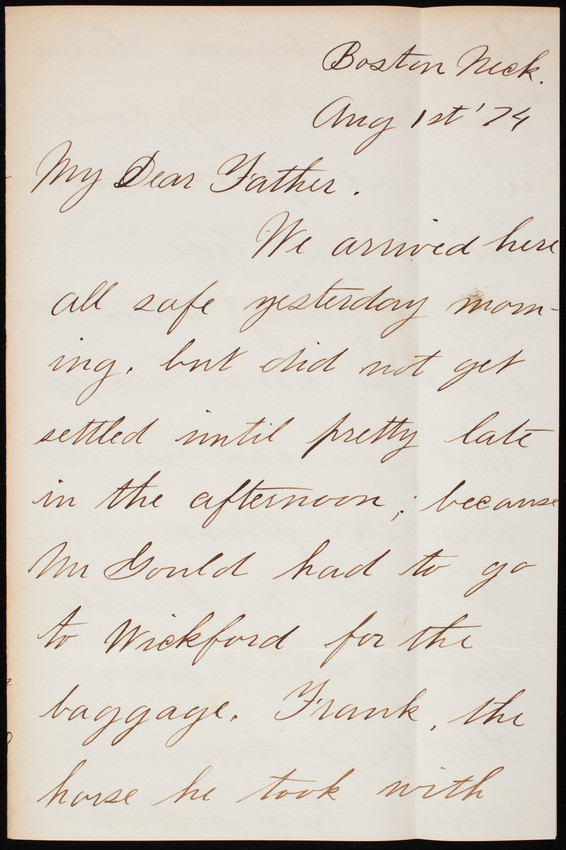 Boston Neck.
Aug 1st '74
My Dear Father.
We arrived here
all safe yesterday morn-
ing, but did not get
settled until pretty late
in the afternoon; because
Mr Gould had to go
to Wickford for the
baggage. Frank, the
horse he took with